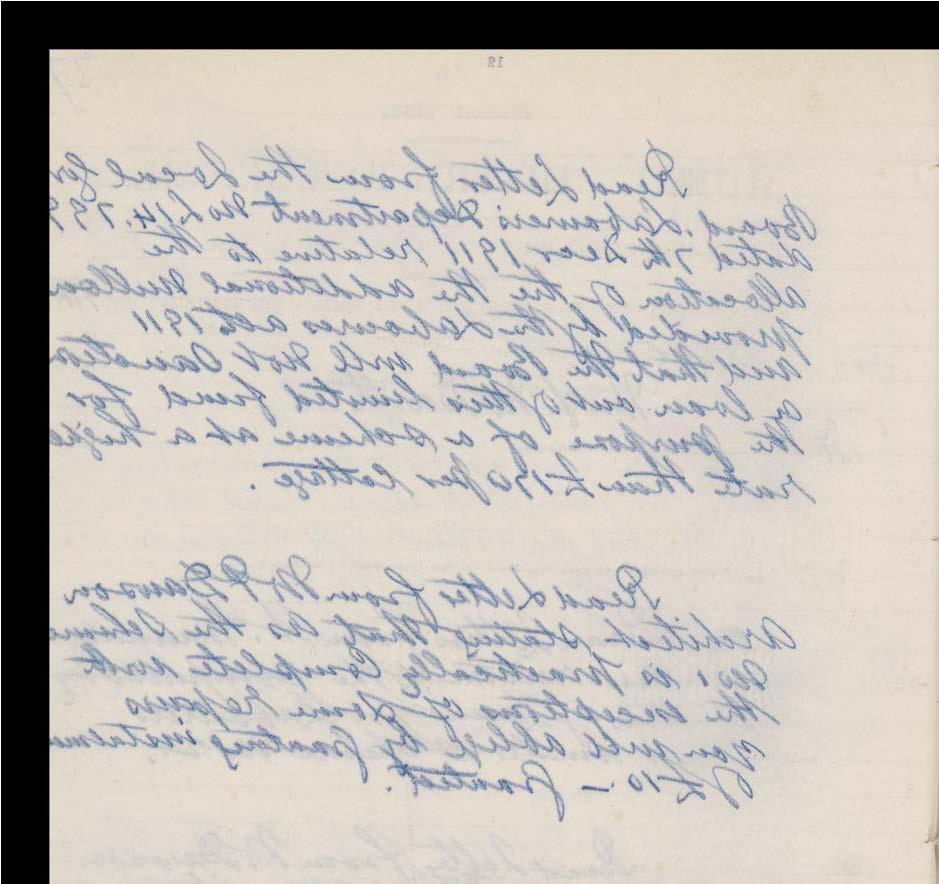 12
Read Letter from the Local Gov
Board. Labourers Department No L/14.799
dated 7th Decr 1911 relative to the
allocation of the the additional Million
provided by the Labourers act 1911
and that the Board will not sanction
a loan out of this limited fund for
the purpose of a scheme at a highe
rate than £170 per Cottage.
Read Letter from Mr Dawson
Architect stating that as the Scheme
No. 1 is practically Complete with
the exception of some repairs
you will oblige by granting instalme
of £10 — granted.
Read Letter from Mr Dawson